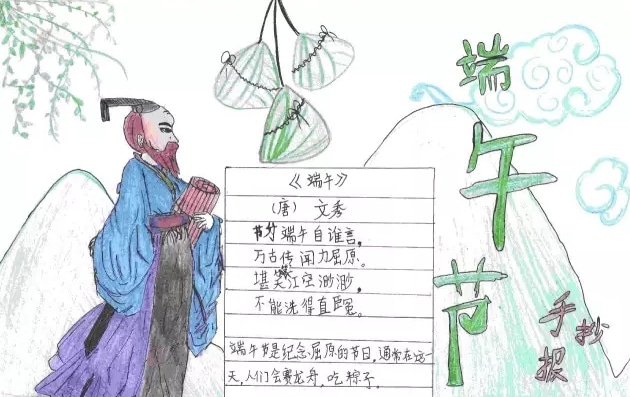 端午节
手抄报
《端午》
(唐) 文秀
节分端午自谁言,
万古传闻为屈原。
堪笑楚江空渺渺,
不能洗得直臣冤。
端午节是纪念屈原的节日,通常在这
天,人们会赛龙舟,吃粽子。